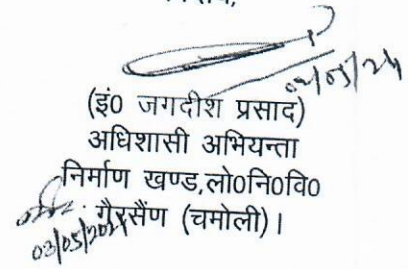 02/05/24
(इं0 जगदीश प्रसाद)
अधिशासी अभियन्ता
निर्माण खण्ड,लो0नि0वि0
गैरसैंण (चमोली)।
03/05/2024